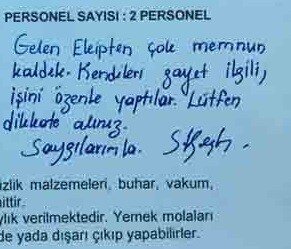 PERSONEL SAYISI : 2 PERSONEL
Gelen Ekipten çok memnun
kaldık. Kendileri gayet ilgili,
işini özenle yaptılar. Lütfen
dikkate alınız.
Saygılarımla.
izlik malzemeleri, buhar, vakum,
ittir.
ylık verilmektedir. Yemek molaları
de yada dışarı çıkıp yapabilirler.